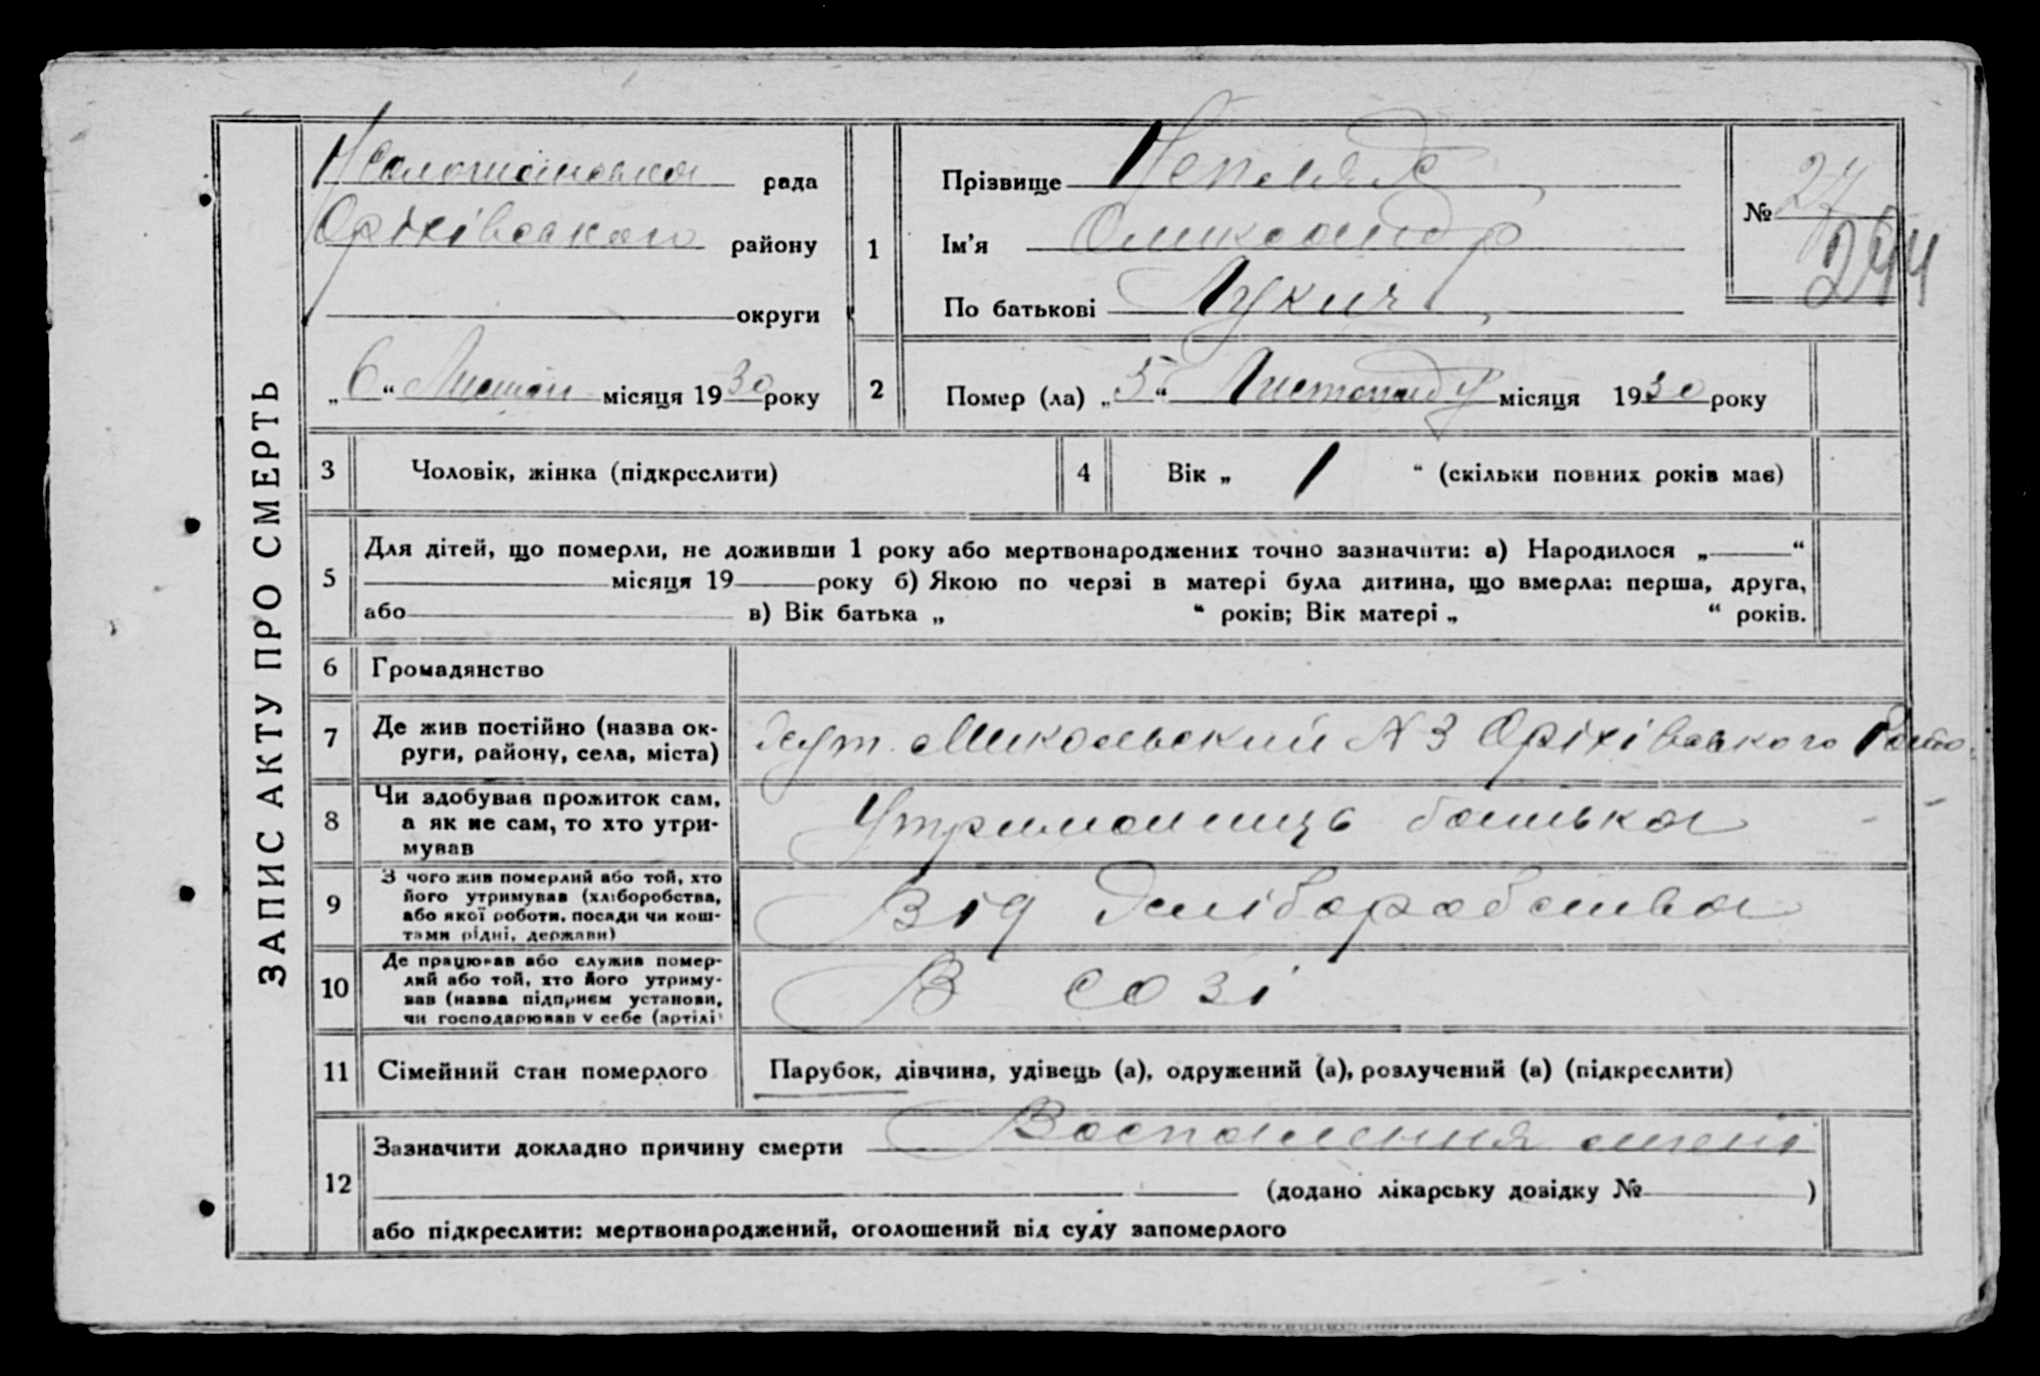 ЗАПИС АКТУ ПРО СМЕРТЬ
рада
Оріхівського району
округи
„6“ Листоп місяця 1930 року
1
Прізвище
Ім’я Олександр
По батькові Лукич
№ 27
244
2 Помер (ла) „5“ Листопаду місяця 1930 року
3 Чоловік, жінка (підкреслити)
4 Вік „ 1 “ (скільки повних років має)
5 Для дітей, що померли, не доживши 1 року або мертвонароджених точно зазначити: а) Народилося „ “
місяця 19 року б) Якою по черзі в матері була дитина, що вмерла: перша, друга,
або в) Вік батька „ “ років; Вік матері „ “ років.
6 Громадянство
7 Де жив постійно (назва ок-
руги, району, села, міста) хут. Микольский №3 Оріхівського
8 Чи здобував прожиток сам,
а як не сам, то хто утри-
мував
Утриманець батька
9 З чого жив померлий або той, хто
його утримував (хліборобства,
або якої роботи, посади чи кош-
тами рідні, держави)
Від хліборобства
10 Де працював або служив помер-
лий або той, хто його утриму-
вав (назва підприєм установи,
чи господарював у себе (артілі)
В созі
11 Сімейний стан померлого Парубок, дівчина, удівець (а), одружений (а), розлучений (а) (підкреслити)
12 Зазначити докладно причину смерти Воспалення
(додано лікарську довідку № )
або підкреслити: мертвонароджений, оголошений від суду запомерлого